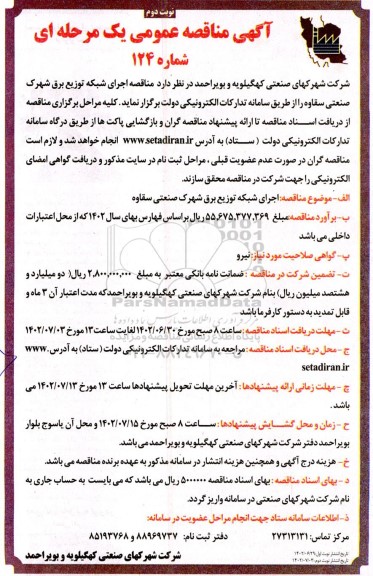 نوبت دوم
آگهی مناقصه عمومی یک مرحله ای
شماره ۱۲۴
شرکت شهرکهای صنعتی کهگیلویه و بویراحمد در نظر دارد مناقصه اجرای شبکه توزیع برق شهرک
صنعتی سقاوه را از طریق سامانه تدارکات الکترونیکی دولت برگزار نماید. کلیه مراحل برگزاری مناقصه
از دریافت اسناد مناقصه تا ارائه پیشنهاد مناقصه گران و بازگشایی پاکت ها از طریق درگاه سامانه
تدارکات الکترونیکی دولت (ستاد) به آدرس www.setadiran.ir انجام خواهد شد و لازم است
مناقصه گران در صورت عدم عضویت قبلی، مراحل ثبت نام در سایت مذکور و دریافت گواهی امضای
الکترونیکی را جهت شرکت در مناقصه محقق سازند.
الف- موضوع مناقصه: اجرای شبکه توزیع برق شهرک صنعتی سقاوه
ب- برآورد مناقصه: مبلغ ۵۵,۶۷۵,۳۷۷,۳۶۹ ریال براساس فهارس بهای سال ۱۴۰۲ که از محل اعتبارات
داخلی می باشد
پ- گواهی صلاحیت مورد نیاز: نیرو
ت- تضمین شرکت در مناقصه: ضمانت نامه بانکی معتبر به مبلغ ۲,۸۰۰,۰۰۰,۰۰۰ ریال( دو میلیارد و
هشتصد میلیون ریال) بنام شرکت شهرکهای صنعتی کهگیلویه و بویراحمد که مدت اعتبار آن ۳ ماه و
قابل تمدید به دستور کارفرما باشد
ث- مهلت دریافت اسناد مناقصه: ساعت ۸ صبح مورخ ۱۴۰۲/۰۶/۳۰ لغایت ساعت ۱۳ مورخ ۱۴۰۲/۰۷/۰۳
ج- محل دریافت اسناد مناقصه: مراجعه به سامانه تدارکات الکترونیکی دولت (ستاد) به آدرس www.
setadiran.ir
چ- مهلت زمانی ارائه پیشنهادها: آخرین مهلت تحویل پیشنهادها ساعت ۱۳ مورخ ۱۴۰۲/۰۷/۱۳ می
باشد.
ح- زمان و محل گشایش پیشنهادها: ساعت ۸ صبح مورخ ۱۴۰۲/۰۷/۱۵ و محل آن یاسوج بلوار
بویراحمد دفتر شرکت شهرکهای صنعتی کهگیلویه و بویراحمد می باشد.
خ- هزینه درج آگهی و همچنین هزینه انتشار در سامانه مذکور به عهده برنده مناقصه می باشد.
د- بهای اسناد مناقصه: بهای اسناد مناقصه ۵۰۰۰۰۰۰ ریال می باشد که می بایست به حساب جاری به
نام شرکت شهرکهای صنعتی در سامانه واریز گردد.
ذ- اطلاعات سامانه ستاد جهت انجام مراحل عضویت در سامانه:
مرکز تماس: ۲۷۳۱۳۱۳۱ دفتر ثبت نام: ۸۸۹۶۹۷۳۷ و ۸۵۱۹۳۷۶۸
شرکت شهرکهای صنعتی کهگیلویه و بویراحمد
تاریخ انتشار نوبت اول: ۱۴۰۲/۰۶/۲۹
تاریخ انتشار نوبت دوم: ۱۴۰۲/۰۷/۰۲
ParsNamadData